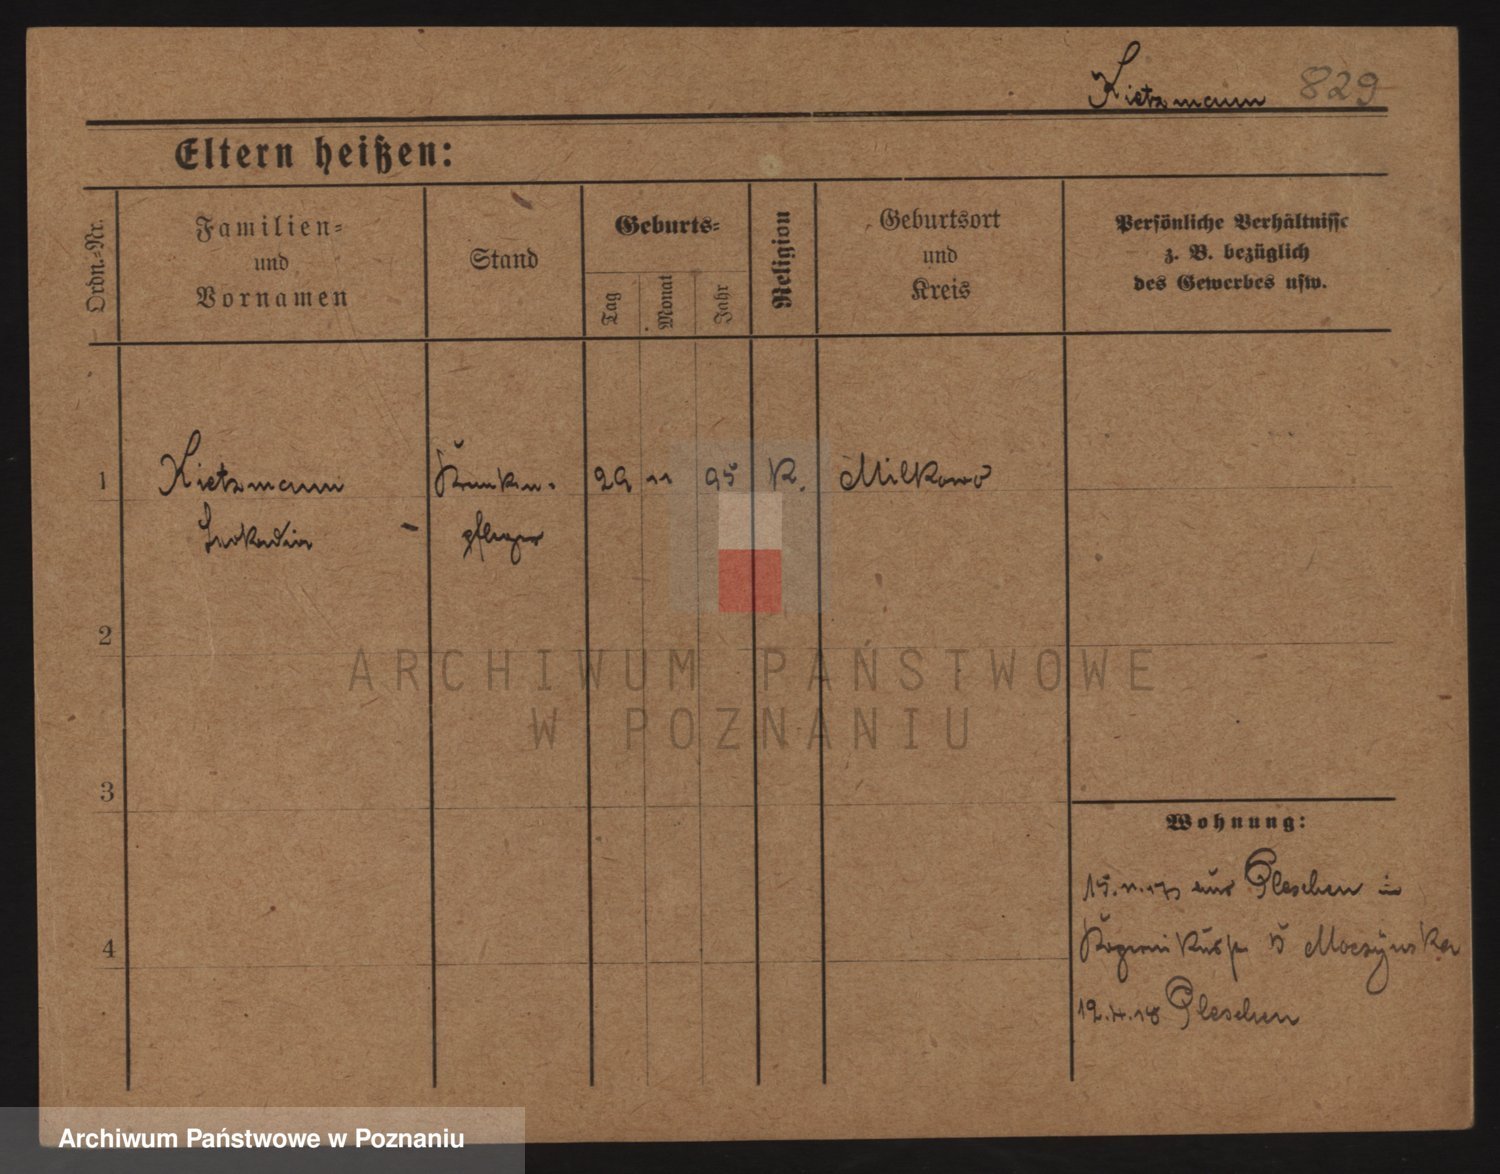 Kietzmann 829
Eltern heißen:
Ordn.-Nr.
Familien-
und
Vornamen
Stand
Geburts-
Tag
Monat
Jahr
Religion
Geburtsort
und
Kreis
Persönliche Verhältnisse
z. B. bezüglich
des Gewerbes usw.
1 Kietzmann Kranken- 29 11 95 K. Milkowo
Leokadia - pfleger
2
3
4
Wohnung:
15. aus Pleschen in
5
12.4.18 Pleschen
ARCHIWUM PAŃSTWOWE
W POZNANIU
Archiwum Państwowe w Poznaniu